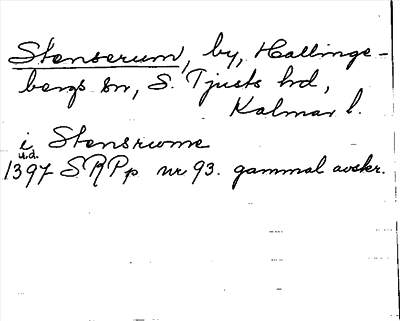 Stenserum, by, Hallinge-
bergs sn, S. Tjusts hd,
Kalmar l.
i Stensrwme
u.d.
1397 SRPp nr 93. gammal avskr.